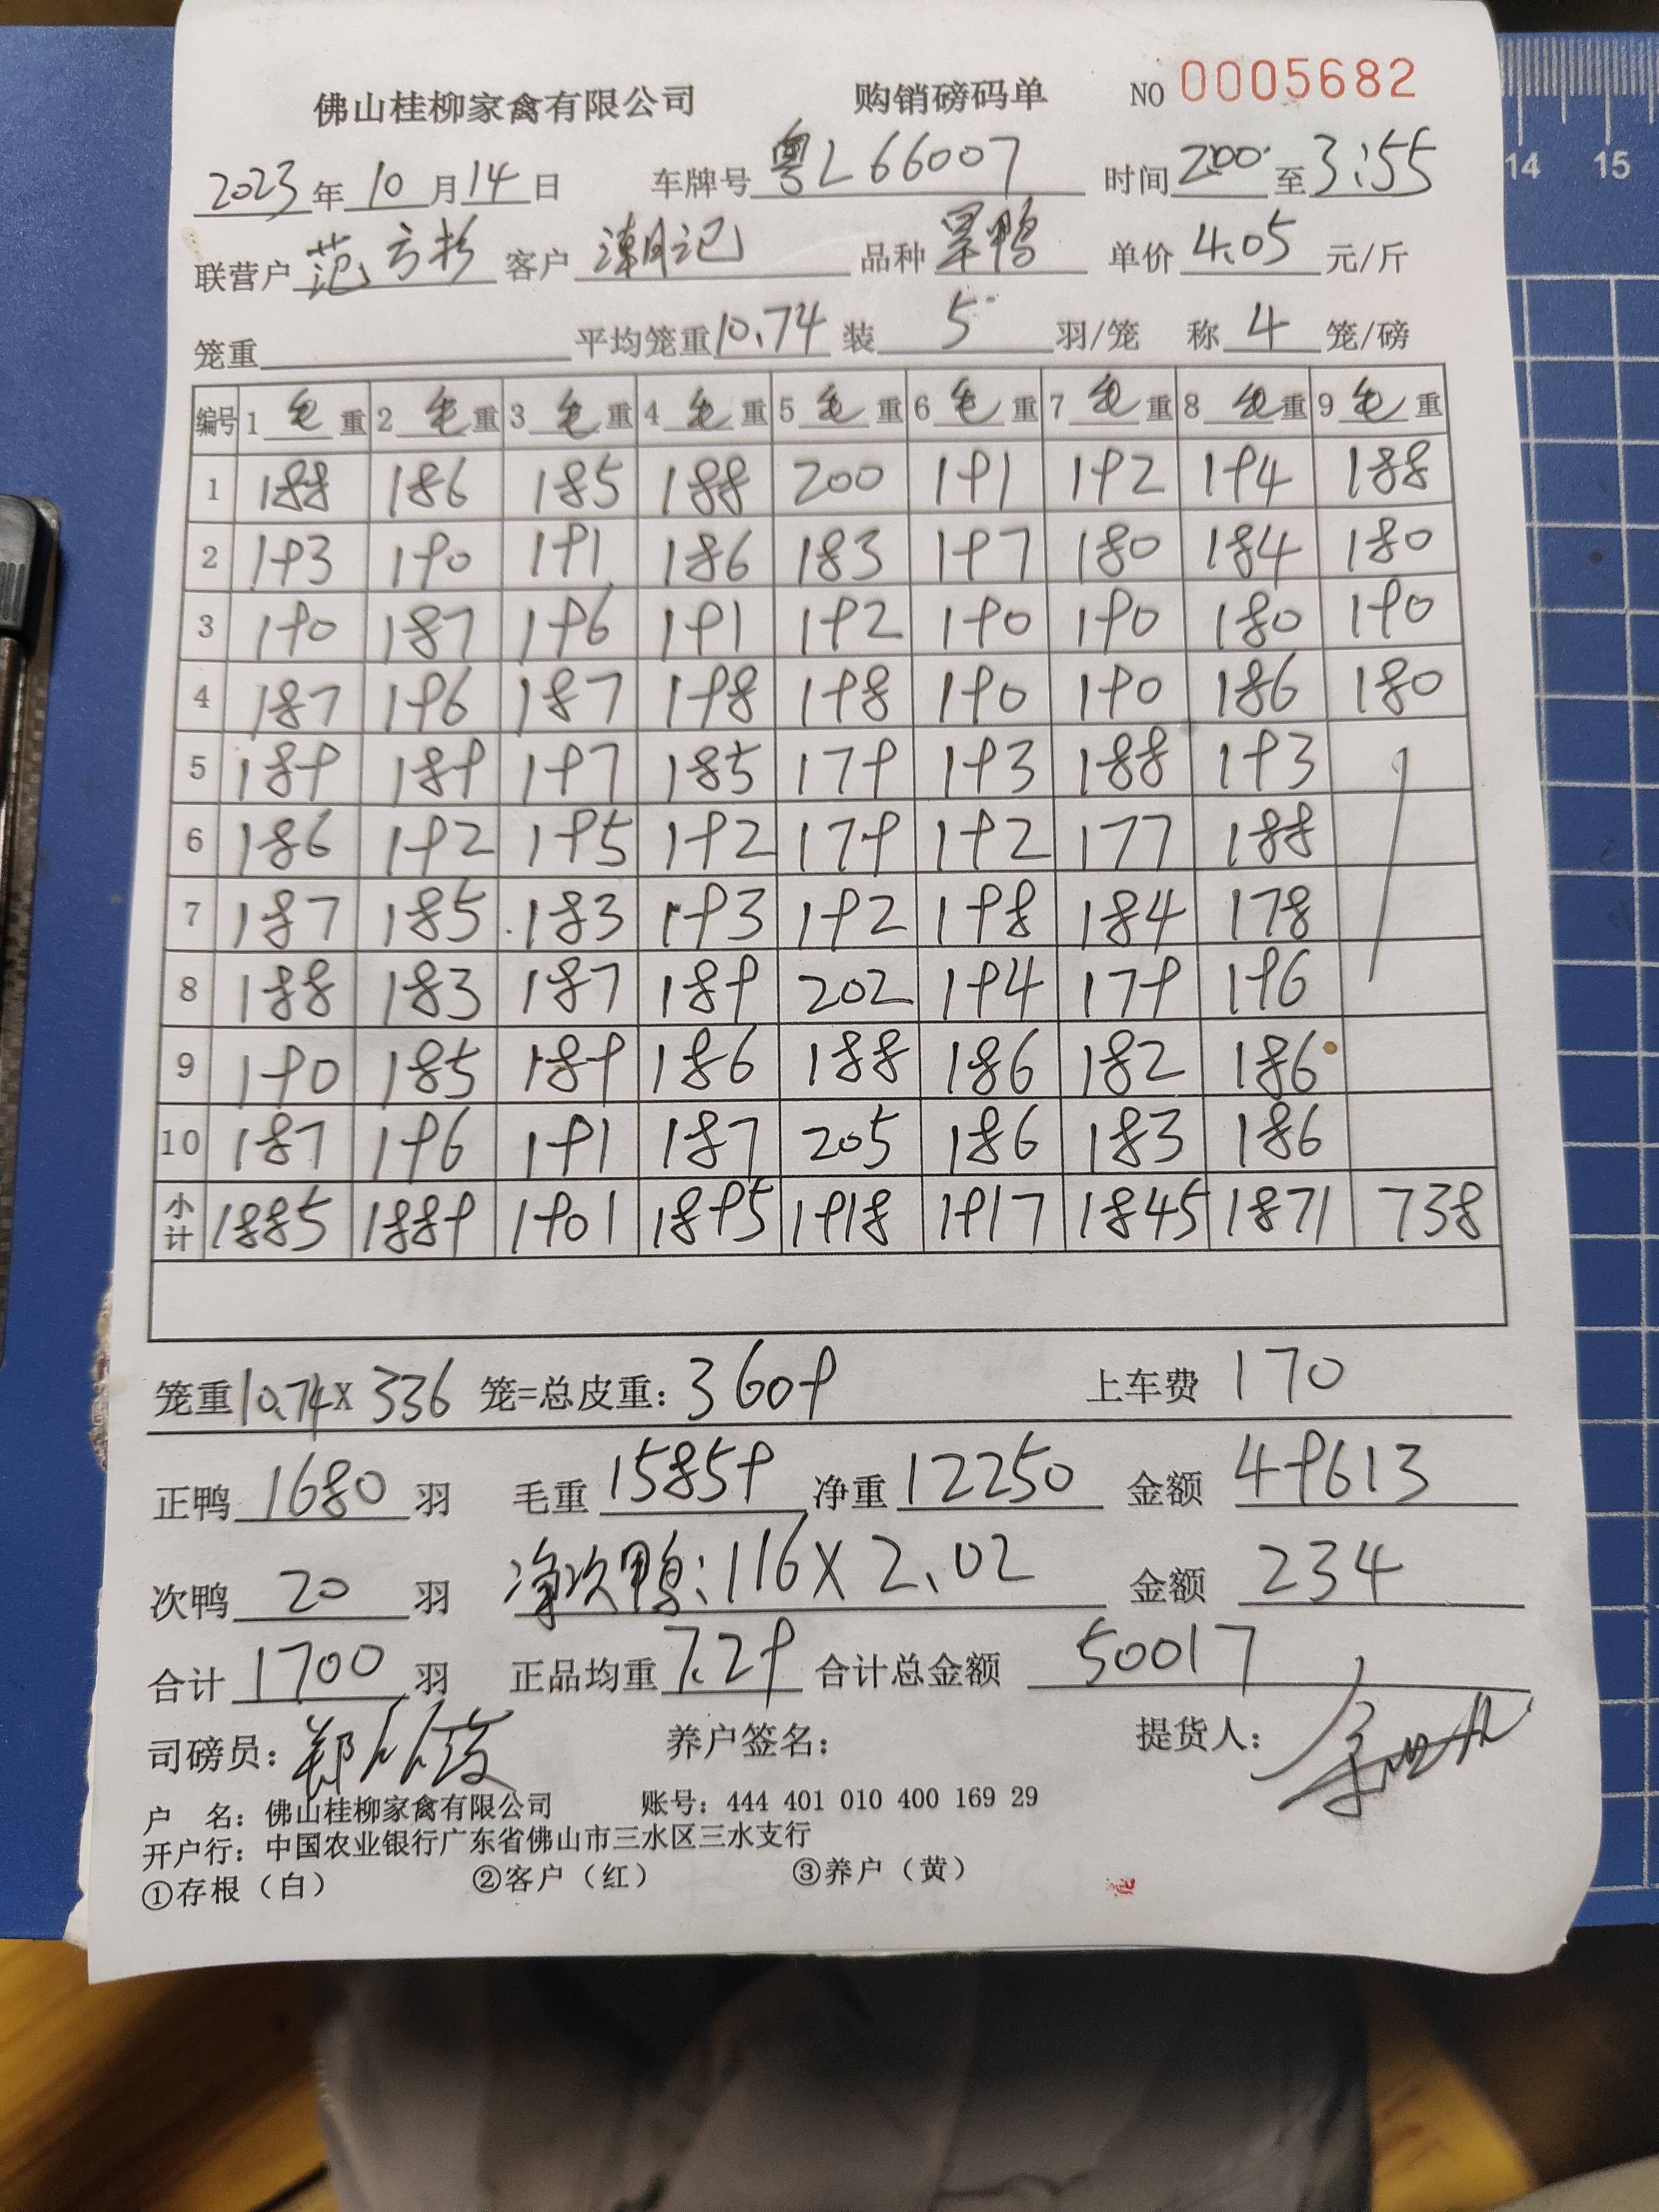 佛山桂柳家禽有限公司 购销磅码单 NO 0005682
2023年10月14日 车牌号 粤L66007 时间 2:00 至 3:55
联营户 范方杉 客户 潮记 品种 旱鸭 单价 4.05 元/斤
笼重 平均笼重 10.74 装 5 羽/笼 称 4 笼/磅
编号 1 毛重 2 毛重 3 毛重 4 毛重 5 毛重 6 毛重 7 毛重 8 毛重 9 毛重
1 188 186 185 188 200 191 192 194 188
2 193 190 191 186 183 197 180 184 180
3 190 187 196 191 192 190 190 180 190
4 187 196 187 198 198 190 190 186 180
5 189 189 197 185 179 193 188 193
6 186 192 195 192 179 192 177 188
7 187 185 183 193 192 198 184 178
8 188 183 187 189 202 194 179 196
9 190 185 189 186 188 186 182 186
10 187 196 191 187 205 186 183 186
小计 1885 1889 1901 1895 1918 1917 1845 1871 738
笼重 10.74 X 336 笼=总皮重: 3609 上车费 170
正鸭 1680 羽 毛重 15859 净重 12250 金额 49613
次鸭 20 羽 净次鸭: 116 X 2.02 金额 234
合计 1700 羽 正品均重 7.29 合计总金额 50017
司磅员: 养户签名: 提货人:
户 名: 佛山桂柳家禽有限公司 账号: 444 401 010 400 169 29
开户行: 中国农业银行广东省佛山市三水区三水支行
①存根(白) ②客户(红) ③养户(黄)
14 15